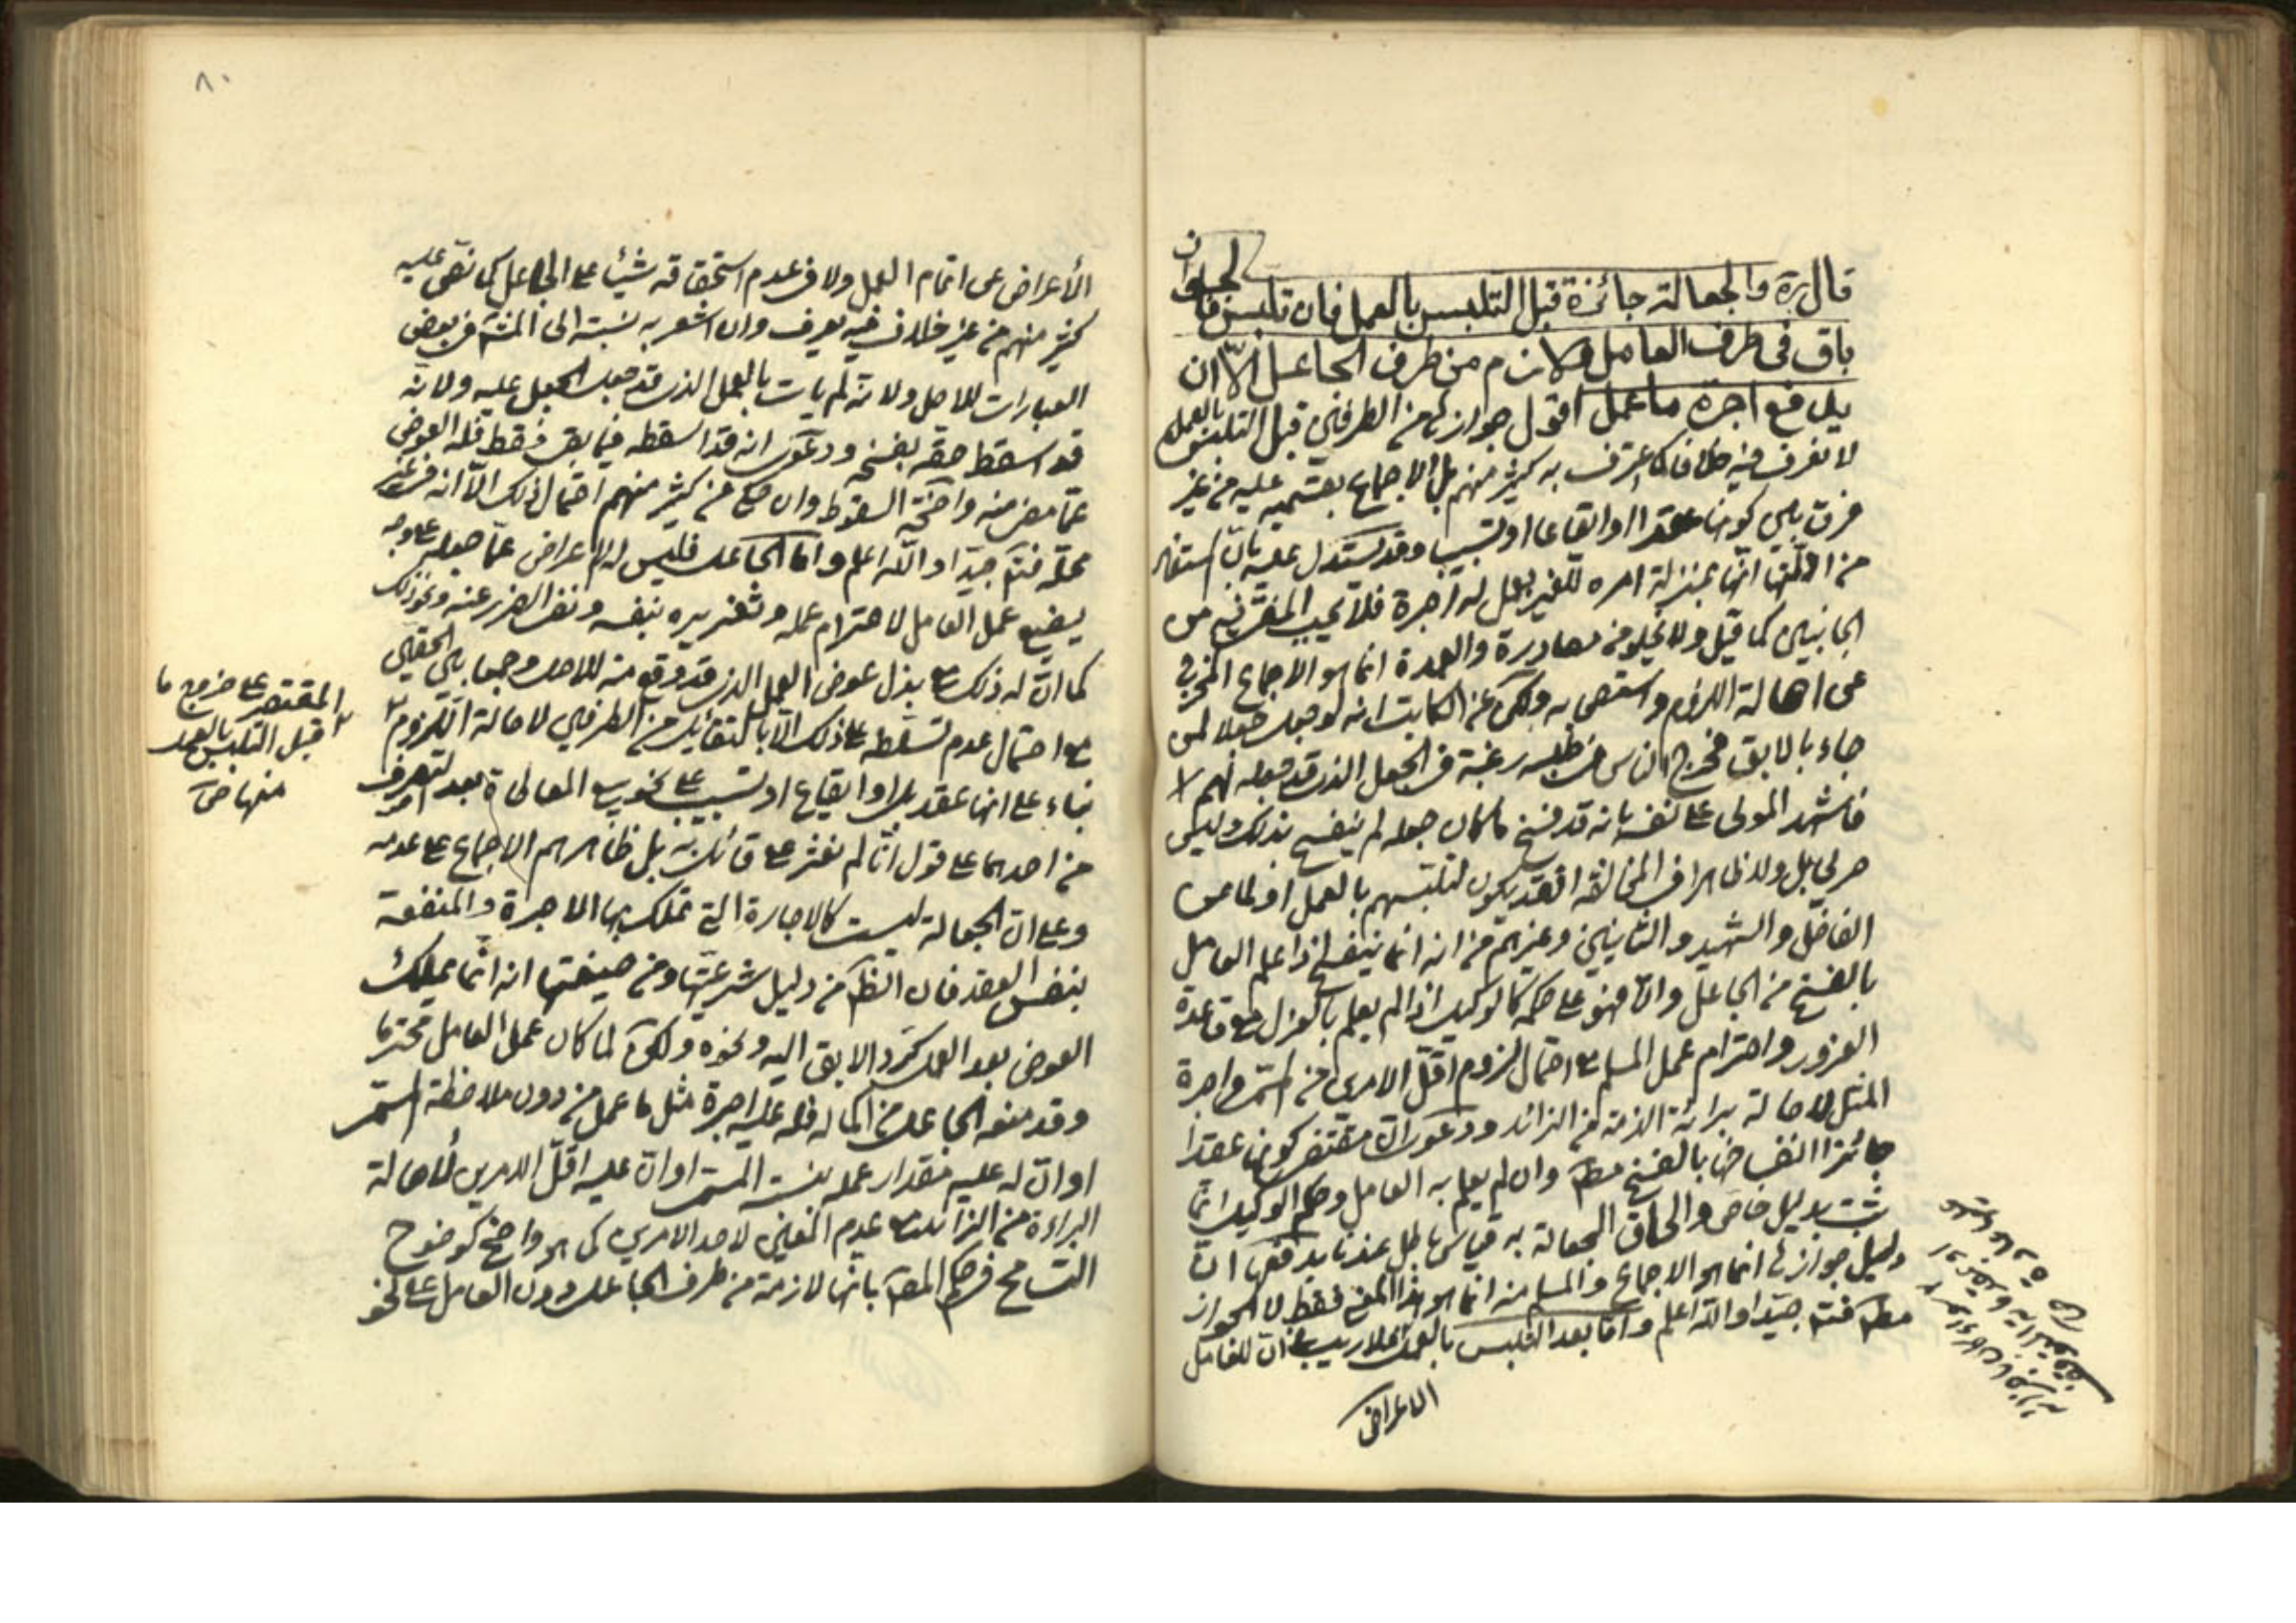 قال ره والجعالة جائزة قبل التلبس بالعمل فان تلبس فالجواز
باق في طرف العامل ولازم من طرف الجاعل الا ان
يدفع اجرة ما عمل اقول جوازها من الطرفين قبل التلبس بالعمل
لا نعرف فيه خلافا كما اعترف به كثير منهم بل الاجماع بقسميه عليه من غير
فرق بين كونها عقدا او ايقاعا او تسبيب وقد يستدل عليه بان
من انها بمنزلة امره للغير بعمل له اجرة فلا يجب المضي فيه من
الجانبين كما قيل ولا يخلو من مصادرة والعمدة انما هو الاجماع المخرج
عن اصالة اللزوم واستصحابه ولكن عن الكاتب انه لو جعل جعلا لمن
جاء بالابق فخرج الناس في طلبه رغبة في الجعل الذي قد جعله لهم
فاشهد المولى على نفسه بانه قد فسخ ما كان جعله لم ينفسخ بذلك وليس
صريحا بل ولا ظاهرا في المخالفة اذ قد يكون لتلبسهم بالعمل او لما عن
الفاضل والشهيد والثانيين وغيرهم من انه انما ينفسخ اذا علم العامل
بالفسخ من الجاعل والا فهو على حكمه كالوكيل اذا لم يعلم بالعزل مع قاعدة
الغرور واحترام عمل المسلم مع احتمال لزوم اقل الامرين من المسمى واجرة
المثل لاصالة برائة الذمة من الزائد ودعوى ان مقتضى كونها عقدا
جائزا انفساخها بالفسخ مطلقا وان لم يعلم به العامل وحكم الوكيل انما
ثبت بدليل خاص والحاق الجعالة به قياس باطل عندنا يدفعها ان
دليل جوازها انما هو الاجماع والمسلم منه انما هو هذا المعنى فقط لا الجواز
مطلقا فتأمل جيدا والله اعلم واما بعد التلبس بالعمل فلا ريب في ان للعامل
الاعراض
٨٠
الاعراض عن اتمام العمل ولا في عدم استحقاقه شيئا على الجاعل كما نص عليه
كثير منهم من غير خلاف فيه يعرف وان اشعر به نسبته الى في بعض
العبارات للاصل ولانه لم يات بالعمل الذي قد جعل الجعل عليه ولانه
قد اسقط حقه بفسخه ودعوى انه قد اسقطه فيما بقى فقط فله العوض
عما مضى منه واضحة السقوط وان حكي من كثير منهم احتمال ذلك الا انه في غير
محله فتأمل جيدا والله اعلم واما الجاعل فليس له الاعراض عما جعله على وجه
يضيع عمل العامل لاحترام عمله وتغريره بنفسه ونفي الضرر عنه ونحو ذلك
كما ان له ذلك مع بذل عوض العمل الذي قد وقع منه للاصل وجمعا بين الحقين
مع احتمال عدم تسلطه على ذلك الا بالتقايل من الطرفين لاصالة اللزوم
بناء على انها عقد بل او ايقاع او تسبيب على نحو بيع المعاطاة بعد التصرف
من احدهما على قول انا لم نعثر على قائل به بل ظاهرهم الاجماع على عدمه
وعلى ان الجعالة ليست كالاجارة التي تملك بها الاجرة والمنفعة
بنفس العقد فان الظاهر من دليل شرعيتها ومن صيغتها انه انما يملك
العوض بعد العمل كرد الابق اليه ونحوه ولكن لما كان عمل العامل محترما
وقد منعه الجاعل من اكماله فله عليه اجرة مثل ما عمل من دون ملاحظة المسمى
او ان له عليه مقدار عمله بنسبة المسمى او ان عليه اقل الامرين لاصالة
البراءة من الزائد مع عدم المعين لاحد الامرين كما هو واضح كوضوح
التسامح في حكم المصنف بانها لازمة من طرف الجاعل دون العامل على نحو
المقتصر على خروج ما
قبل التلبس بالعمل
منها خاصة